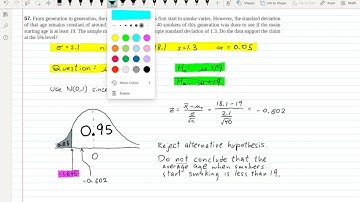 57. From generation to generation, the first start to smoke varies. However, the standard deviation
of that age remains constant of around 40 smokers of this generation was done to see if the mean
starting age is at least 19. The sample standard deviation of 1.3. Do the data support the claim
at the 5% level?
σ = 2.1 18.1 s=1.3 α = 0.05
Question:
Use N(0,1) since
z = x̄-μ₀ / σ/√n = 18.1-19 / 2.1/√40 = -0.602
0.95
0
-0.602
Reject alternative hypothesis.
Do not conclude that the
average age when smokers
start smoking is less than 19.
More Colors...
Delete